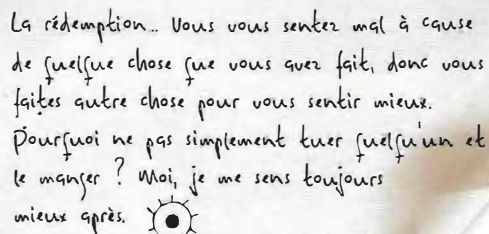 La rédemption.. Vous vous sentez mal à cause
de quelque chose que vous avez fait, donc vous
faites autre chose pour vous sentir mieux.
Pourquoi ne pas simplement tuer quelqu'un et
le manger ? Moi, je me sens toujours
mieux après.